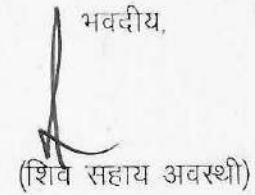 भवदीय,
(शिव सहाय अवस्थी)